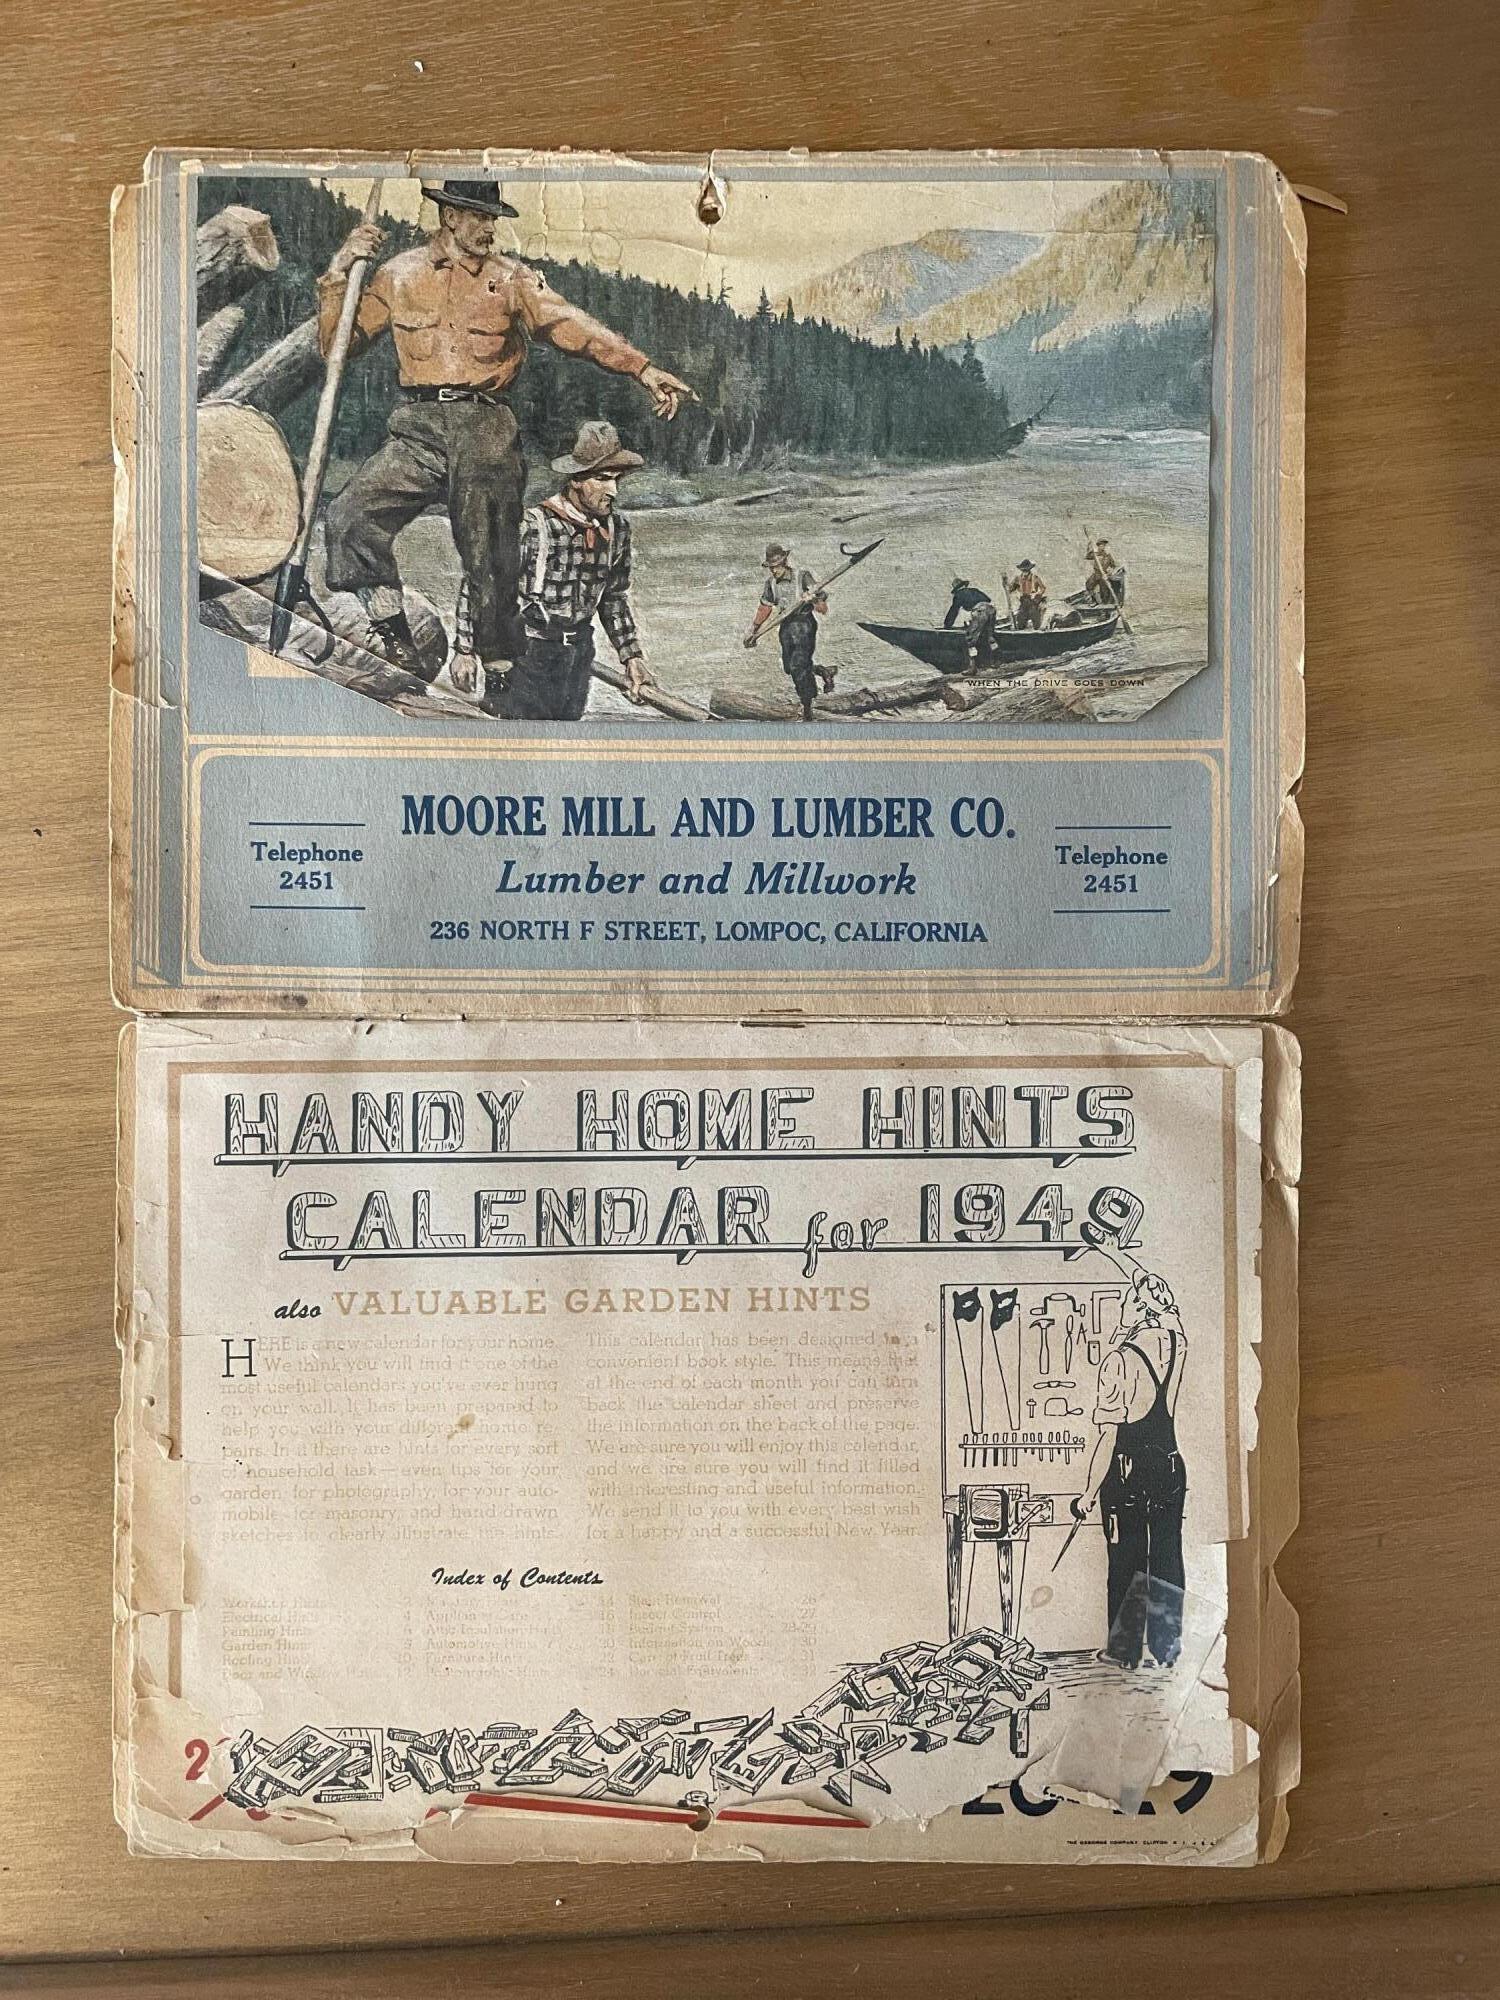 WHEN THE DRIVE GOES DOWN
MOORE MILL AND LUMBER CO.
Telephone
2451
Lumber and Millwork
Telephone
2451
236 NORTH F STREET, LOMPOC, CALIFORNIA
HANDY HOME HINTS
CALENDAR for 1949
also VALUABLE GARDEN HINTS
HERE is a new calendar for your home.
We think you will find it one of the
most useful calendars you've ever hung
on your wall. It has been prepared to
help you with your different home re-
pairs. In it there are hints for every sort
of household task—even tips for your
garden, for photography, for your auto-
mobile. and hand drawn
clearly illustrate the hints.
This calendar has been designed in a
convenient book style. This means that
at the end of each month you can turn
back the calendar sheet and preserve
the information on the back of the page.
We are sure you will enjoy this calendar,
and we are sure you will find it filled
with interesting and useful information.
We send it to you with every best wish
for a happy and a successful New Year.
Index of Contents
Workshop Hints 2
Electrical Hints 4
Painting Hints 6
Garden Hints 8
Roofing 10
Door and Window 12
14
Appliance Care 16
Attic Insulation 18
Automotive Hints 20
Furniture Hints 22
Photographic Hints 24
Stain Removal 26
Insect Control 27
28-29
Information on Woods 30
Care of Fruit Trees 31
Equivalents 32
2
29
THE OSBORNE COMPANY CLIFTON N J